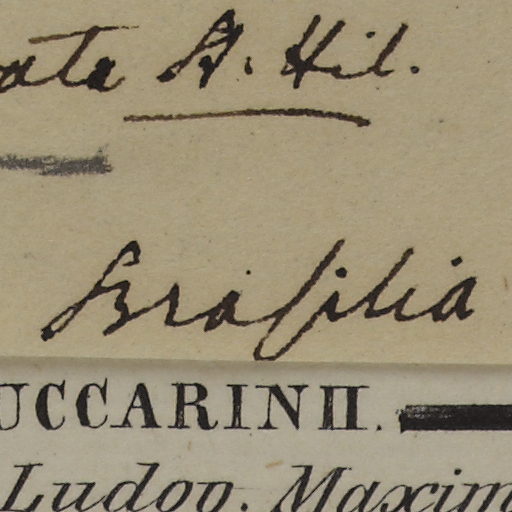 ata A. Hil.
Brasilia
UCCARINII.
Ludov. Maxim